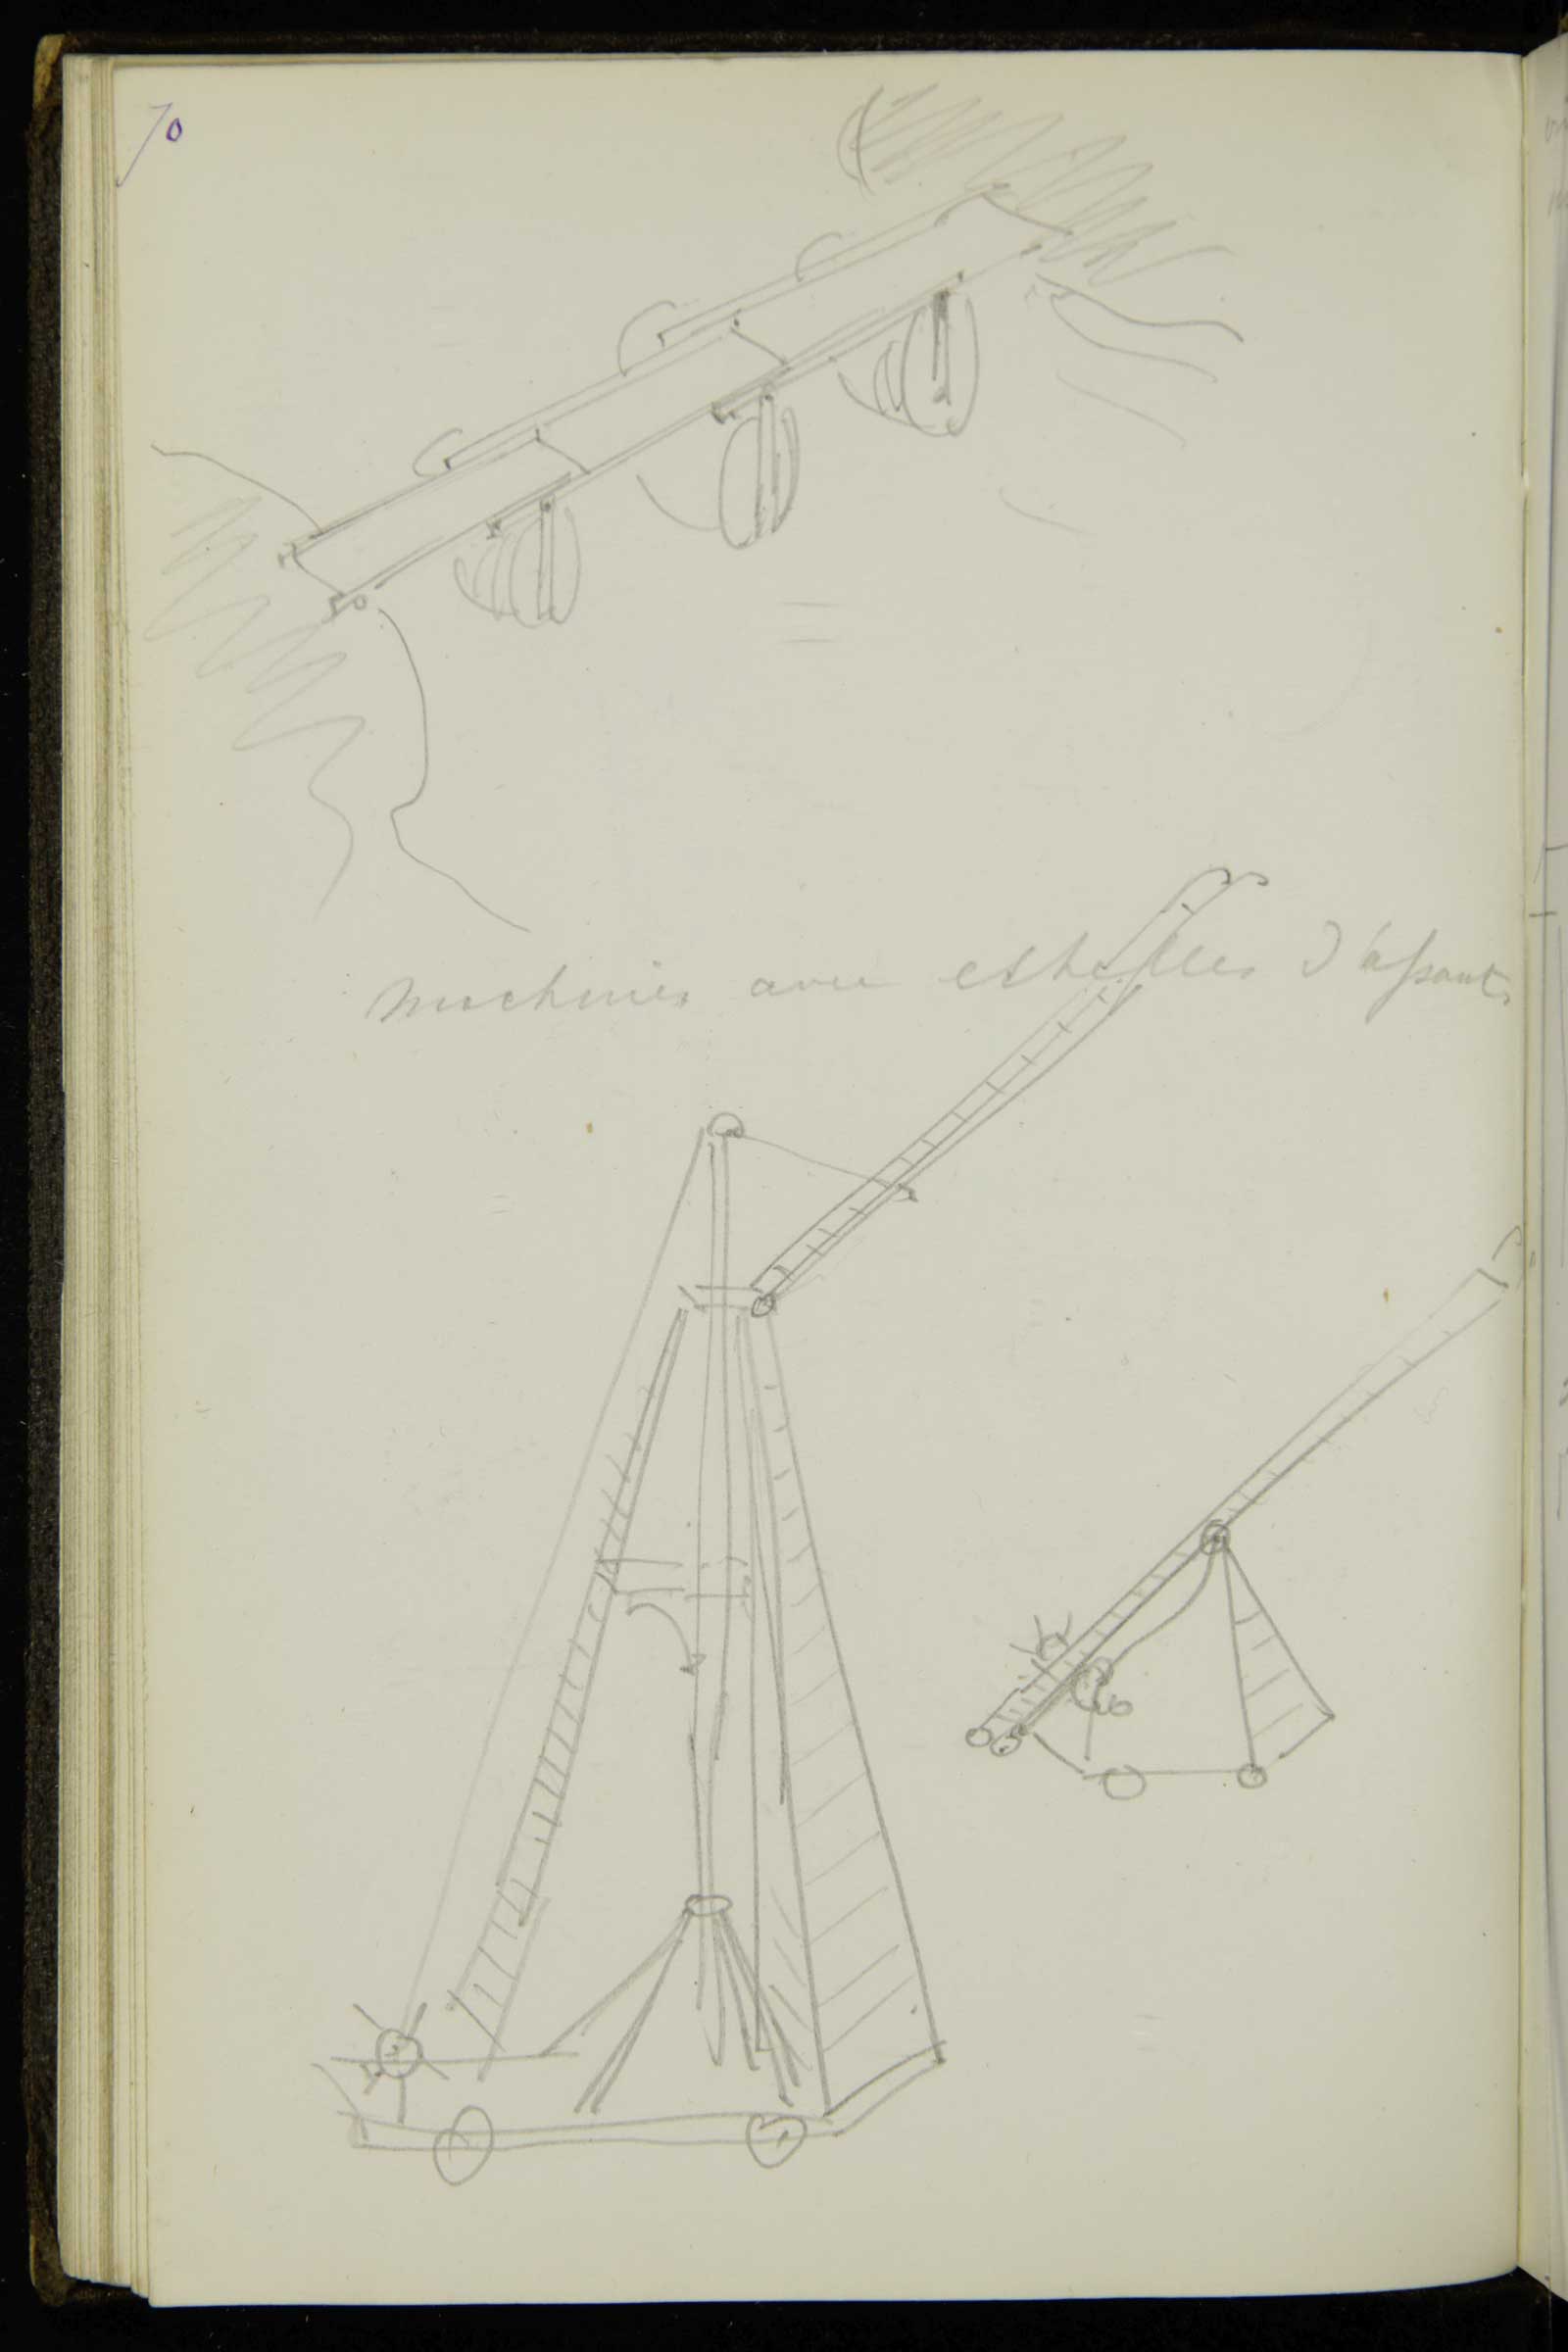 70
machines avec eschelles d'assauts